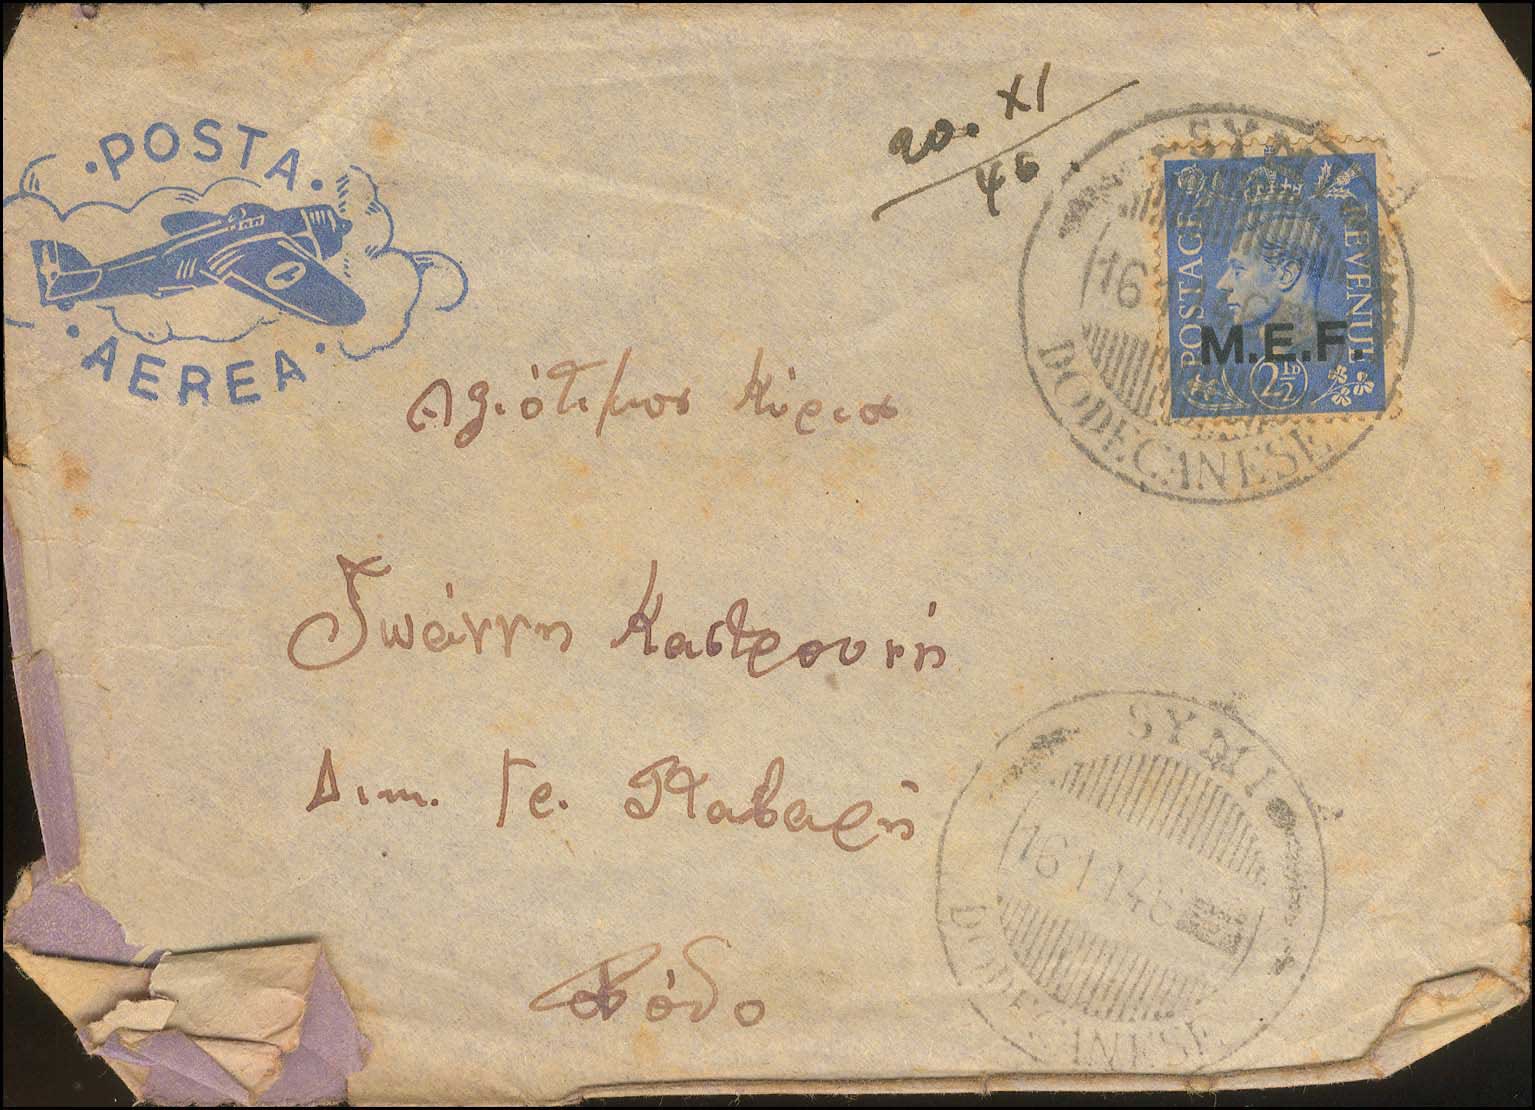 ·POSTA·
·AEREA·
20. XI
46
SYMI
16
DODECANESE
POSTAGE REVENUE
M.E.F.
2½D
Αξιότιμον Κύριον
Ἰωάννη Καστρουνή
Διμ. Γε.
Ρόδο
SYMI
16 11 46
DODECANESE